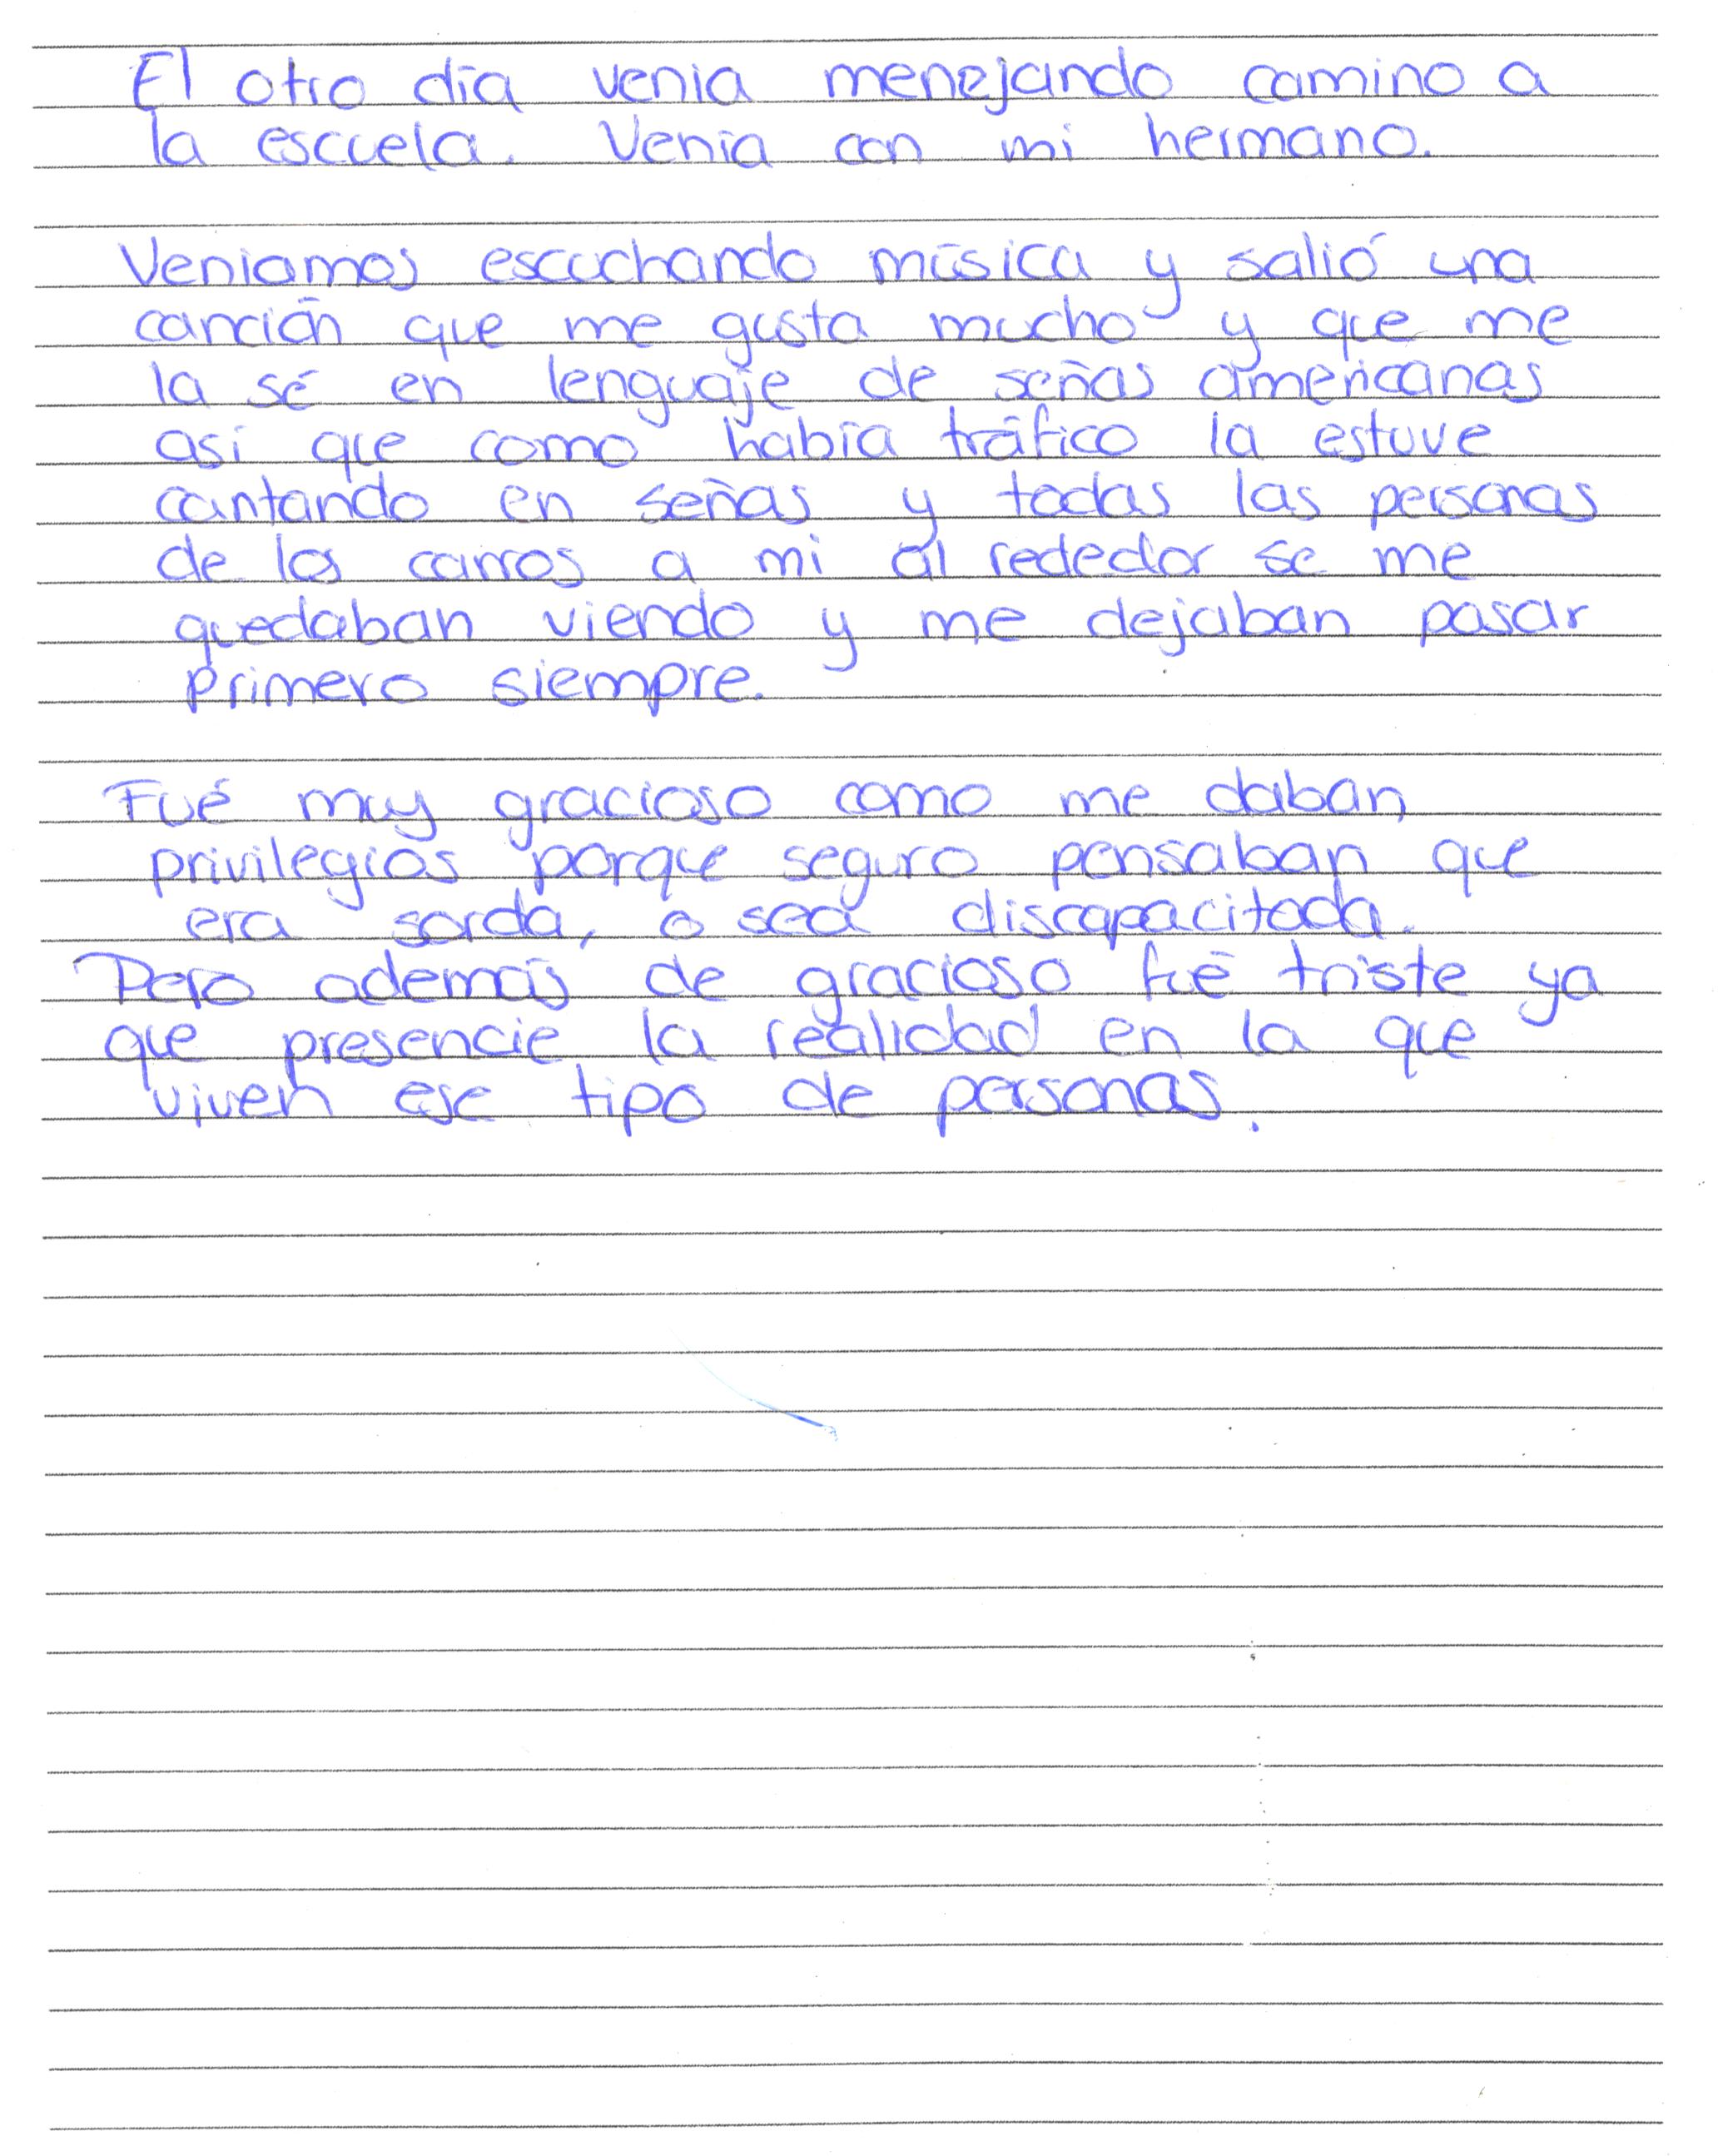 El otro día venia menejando camino a
la escuela. Venia con mi hermano.
Veniamos escuchando música y salió una
canción que me gusta mucho y que me
la sé en lenguaje de señas americanas
así que como había tráfico la estuve
cantando en señas y todas las personas
de los carros a mi al rededor se me
quedaban viendo y me dejaban pasar
primero siempre.
Fué muy gracioso como me daban
privilegios porque seguro pensaban que
era sorda, o sea discapacitada.
Pero además de gracioso fué triste ya
que presencie la realidad en la que
viven ese tipo de personas.